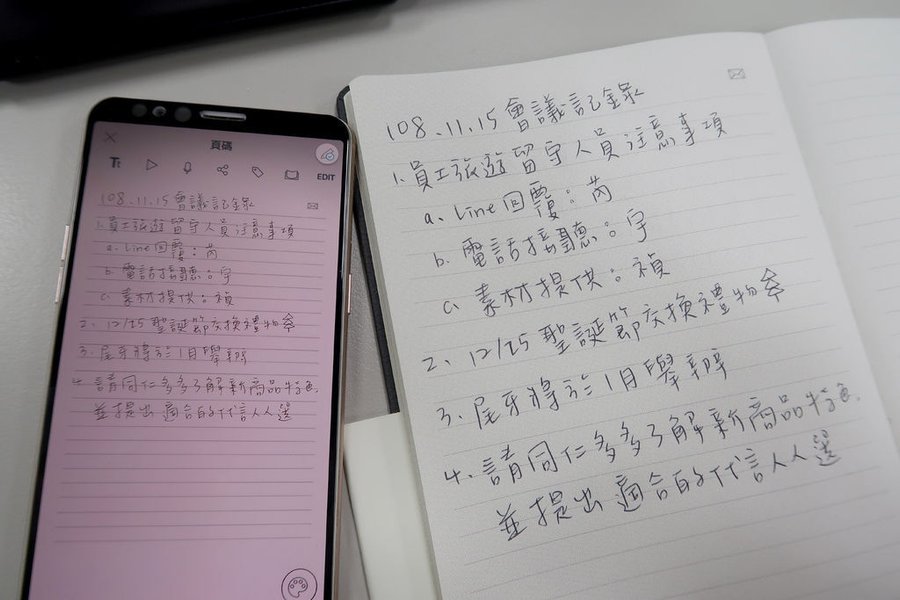 頁碼
Tt
EDIT
108.11.15 會議記錄
1.員工旅遊留守人員注意事項
a.Line回覆:芮
b.電話接聽:宇
c.素材提供:禎
2.12/25聖誕節交換禮物
3.尾牙將於1月舉辦
4.請同仁多多了解新商品特色
並提出適合的代言人人選
108.11.15 會議記錄
1.員工旅遊留守人員注意事項
a.Line回覆:芮
b.電話接聽:宇
c.素材提供:禎
2、12/25聖誕節交換禮物
3、尾牙將於1月舉辦
4、請同仁多多了解新商品特色,
並提出適合的代言人人選